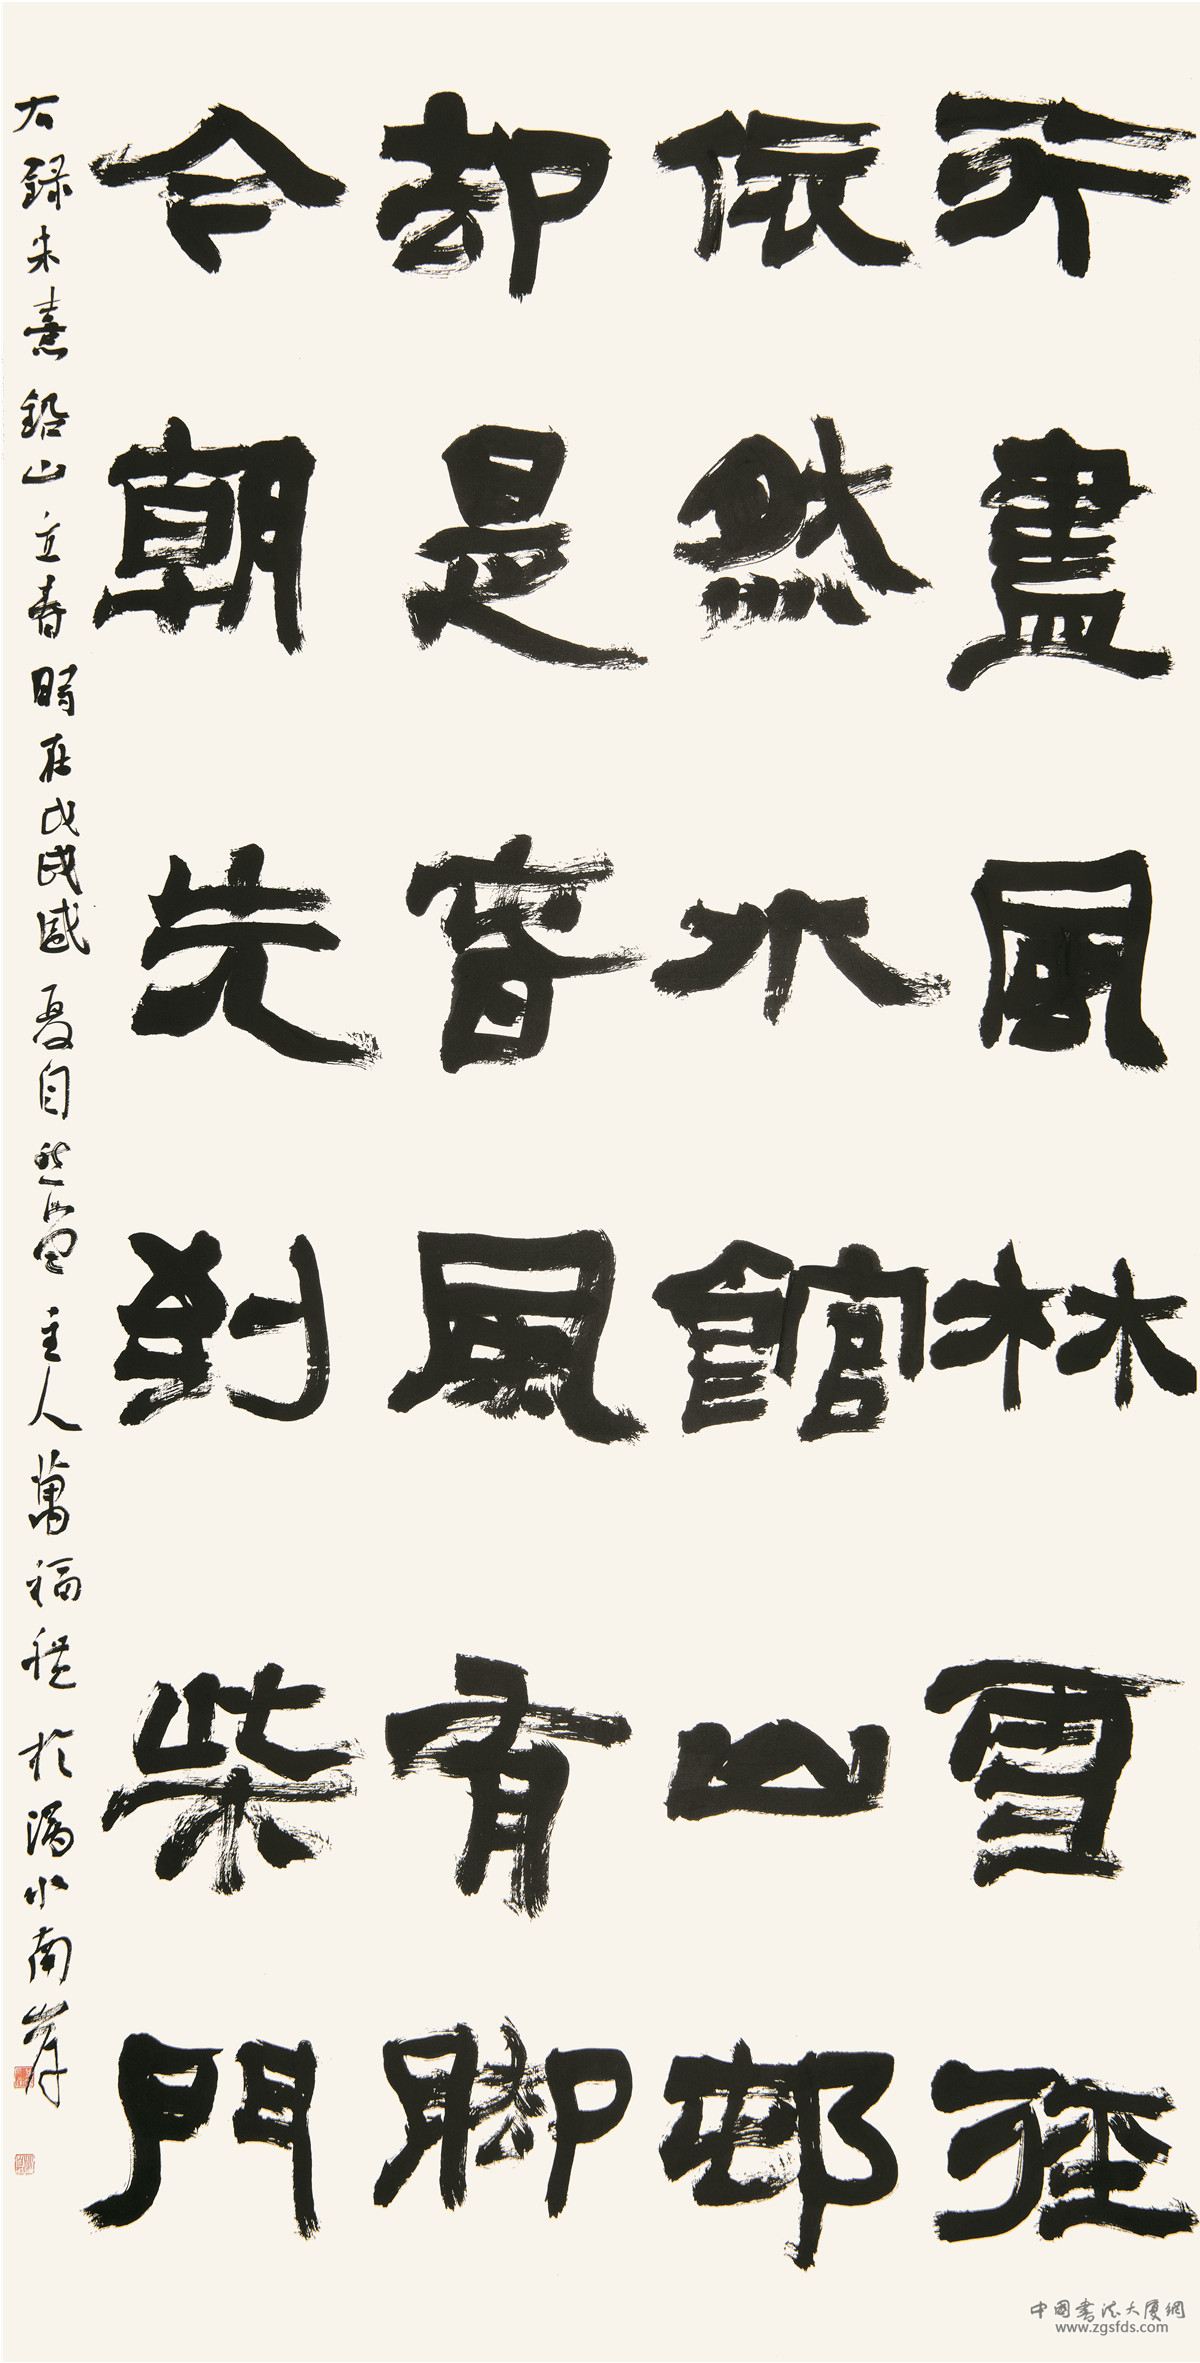 行盡風林雪徑
依然水館山邨
却是春風有脚
今朝先到柴門
右録朱熹鉛山立春時在戊戌盛夏自然堂主人萬福禮於渦水南岸
中國書法大厦網
www.zgsfds.com